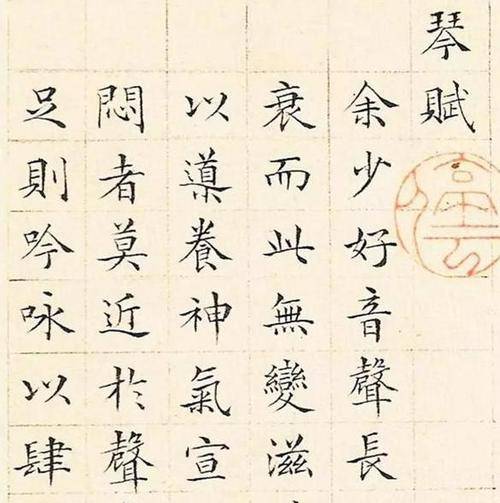 琴賦
余少好音聲長
衰而此無變滋
以䆃養神氣宣
悶者莫近於聲
足則吟咏以肆